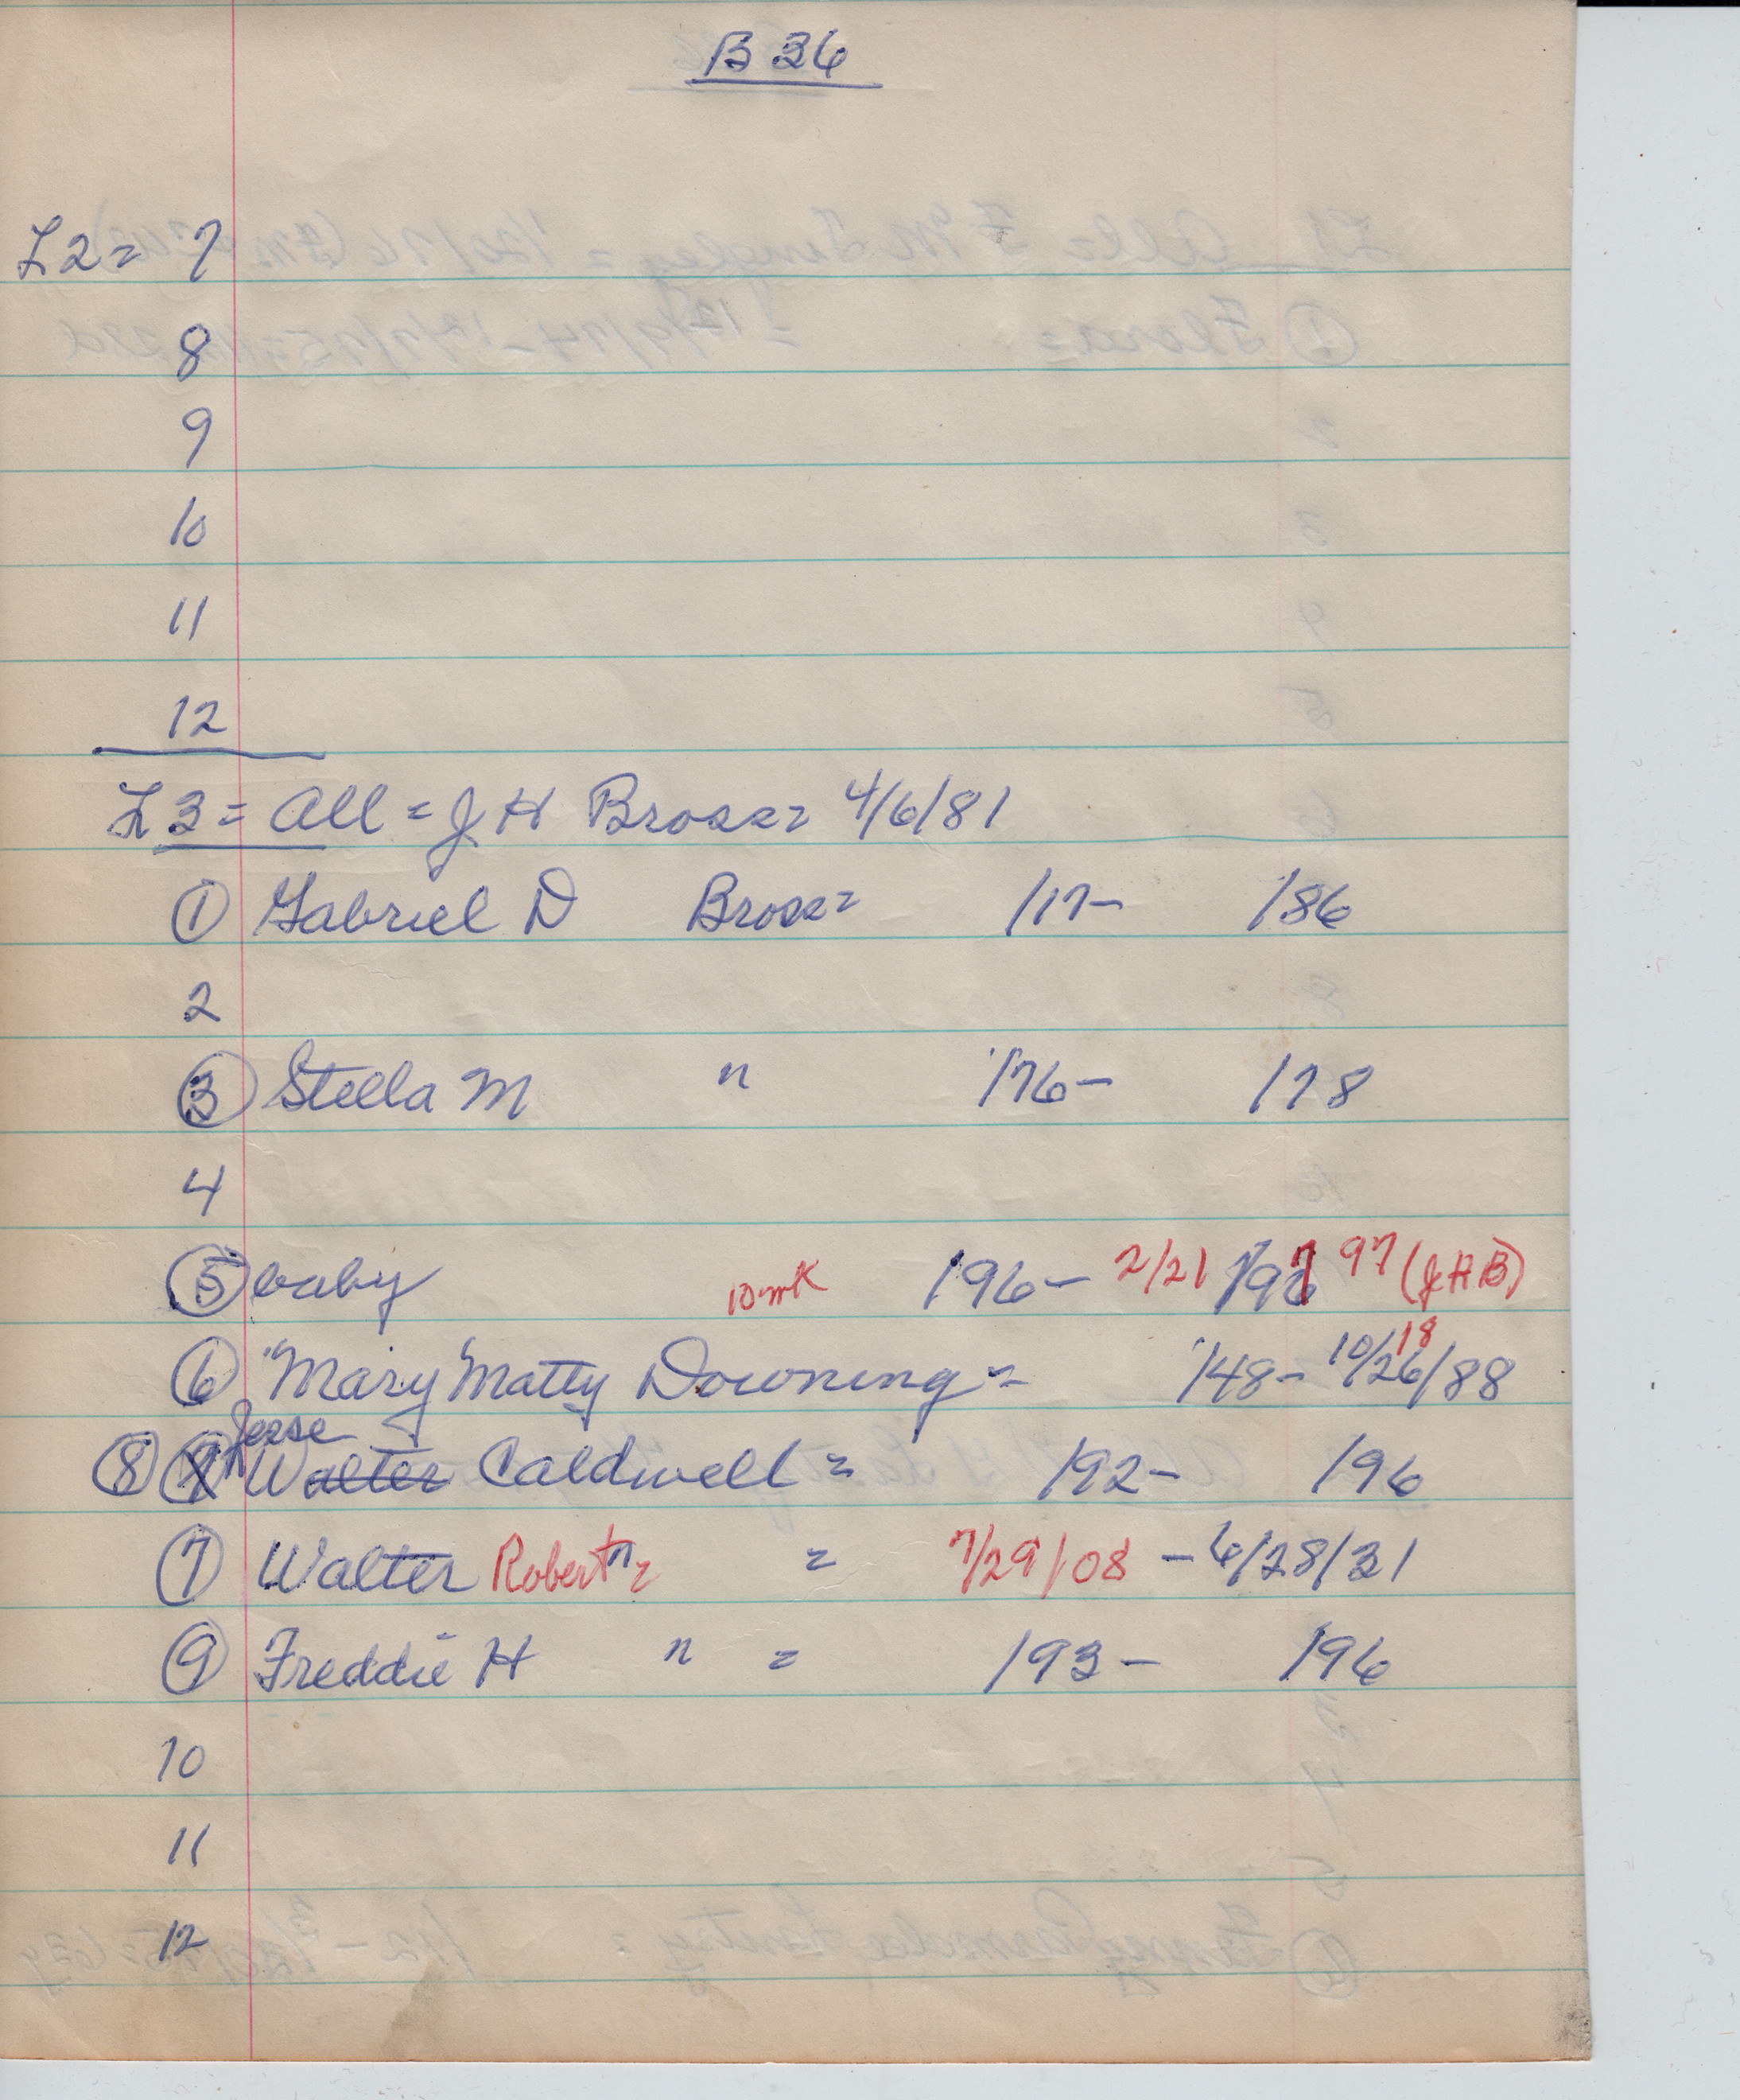 B 36
L2 = 7
8
9
10
11
12
L3 = All = J H Bross = 4/6/81
1 Gabriel D Bross = /17- /86
2
3 Stella M " /76- /78
4
5 baby 10 mk /96- 2/21 97 (JHB)
6 Mary Matty Downing = /48- 10/26/88 18
Jesse
8 Walter Caldwell = /92- /96
7 Walter Robert " = = 7/29/08 - 6/28/31
9 Freddie H " = /93- /96
10
11
12